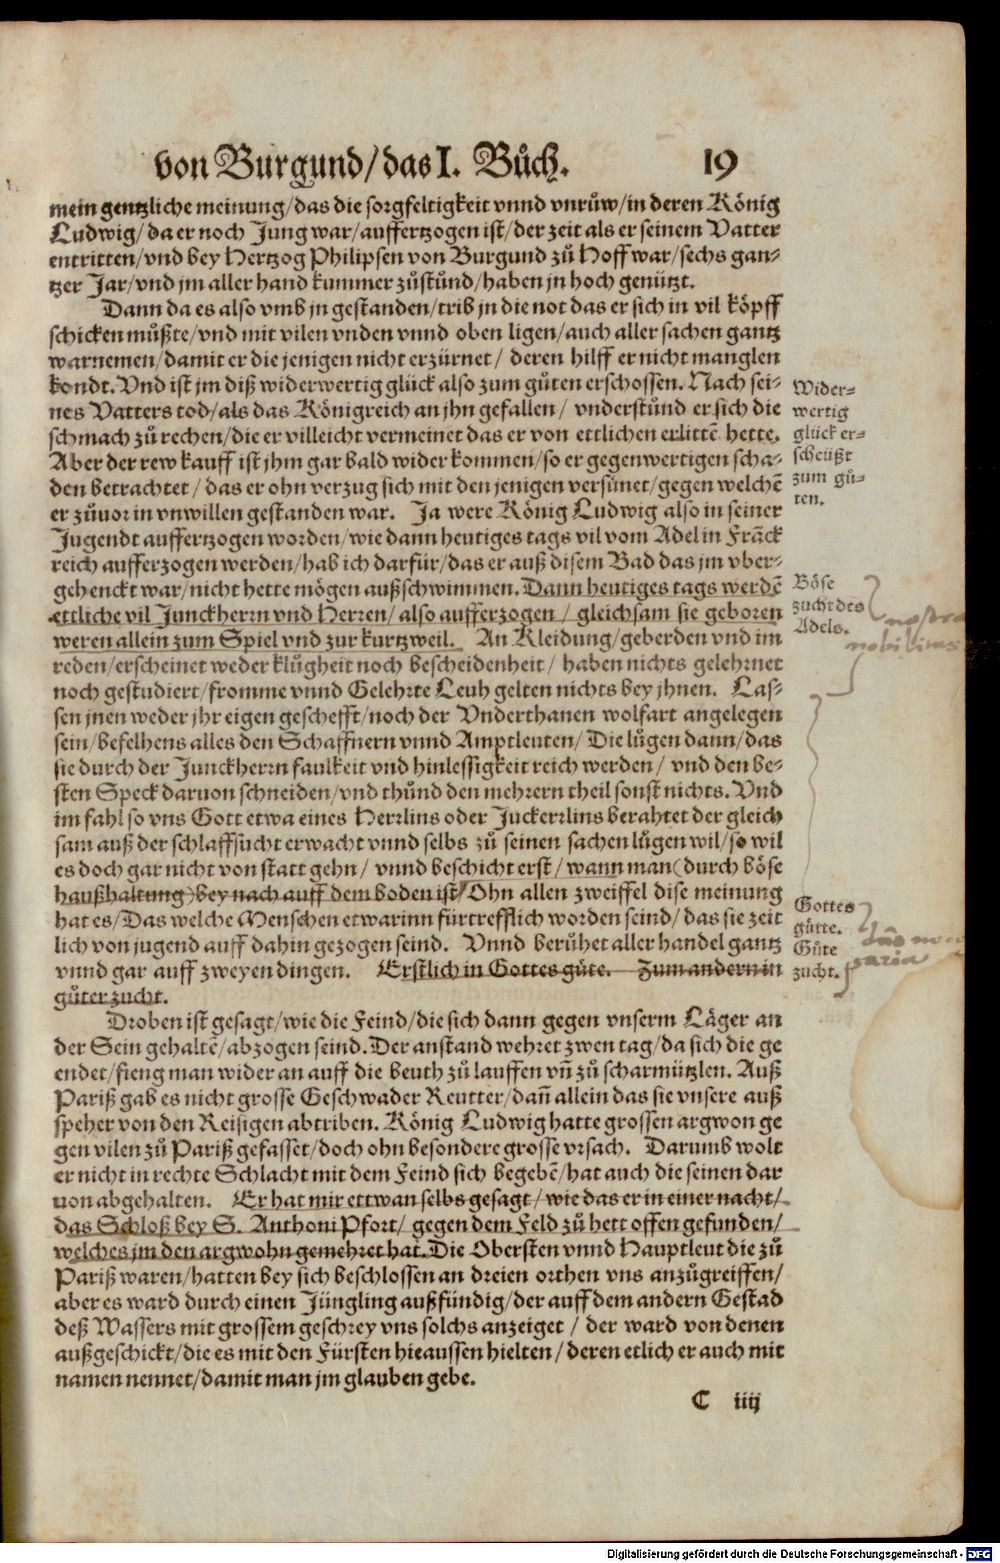 von Burgund/das I. Bůch. 19
mein gentzliche meinung/das die sorgfeltigkeit vnnd vnrůw/in deren König
Ludwig/da er noch Jung war/auffertzogen ist/der zeit als er seinem Vatter
entritten/vnd bey Hertzog Philipsen von Burgund zů Hoff war/sechs gan-
tzer Jar/vnd jm aller hand kummer zůstůnd/haben jn hoch genützt.
Dann da es also vmb jn gestanden/trib jn die not das er sich in vil köpff
schicken můßte/vnd mit vilen vnden vnnd oben ligen/auch aller sachen gantz
warnemen/damit er die jenigen nicht erzürnet/ deren hilff er nicht manglen
kondt. Vnd ist jm diß widerwertig glück also zum gůten erschossen. Nach sei-
nes Vatters tod/als das Königreich an jhn gefallen/ vnderstůnd er sich die
schmach zů rechen/die er villeicht vermeinet das er von ettlichen erlittē hette.
Aber der rew kauff ist jhm gar bald wider kommen/so er gegenwertigen scha-
den betrachtet/das er ohn verzug sich mit den jenigen versünet/gegen welchē
er zůuor in vnwillen gestanden war. Ja were König Ludwig also in seiner
Jugendt auffertzogen worden/wie dann heutiges tags vil vom Adel in Frāck
reich aufferzogen werden/hab ich darfür/das er auß disem Bad das jm vber-
gehenckt war/nicht hette mögen außschwimmen. Dann heutiges tags werdē
ettliche vil Junckherrn vnd Herren/ also aufferzogen/ gleichsam sie geboren
weren allein zum Spiel vnd zur kurtzweil. An Kleidung/geberden vnd im
reden/erscheinet weder klůgheit noch bescheidenheit/ haben nichts gelehrnet
noch gestudiert/fromme vnnd Gelehrte Leuh gelten nichts bey jhnen. Las-
sen jnen weder jhr eigen geschefft/noch der Vnderthanen wolfart angelegen
sein/befelhens alles den Schaffnern vnnd Amptleuten/ Die lůgen dann/das
sie durch der Junckherrn faulkeit vnd hinlessigkeit reich werden/ vnd den be-
sten Speck daruon schneiden/vnd thůnd den mehrern theil sonst nichts. Vnd
im fahl so vns Gott etwa eines Herrlins oder Juckerrlins berahtet der gleich
sam auß der schlaffsucht erwacht vnnd selbs zů seinen sachen lůgen wil/so wil
es doch gar nicht von statt gehn/ vnnd beschicht erst/wann man (durch böse
haußhaltung) bey nach auff dem boden ist/ Ohn allen zweiffel dise meinung
hat es/Das welche Menschen etwarinn fürtrefflich worden seind/das sie zeit
lich von jugend auff dahin gezogen seind. Vnnd berůhet aller handel gantz
vnnd gar auff zweyen dingen. Erstlich in Gottes güte. Zum andern in
gůter zucht.
Droben ist gesagt/wie die Feind/die sich dann gegen vnserm Läger an
der Sein gehaltē/abzogen seind. Der anstand wehret zwen tag/da sich die ge
endet/fieng man wider an auff die beuth zů lauffen vñ zů scharmützlen. Auß
Pariß gab es nicht grosse Geschwader Reutter/dañ allein das sie vnsere auß
speher von den Reisigen abtriben. König Ludwig hatte grossen argwon ge
gen vilen zů Pariß gefasset/doch ohn besondere grosse vrsach. Darumb wolt
er nicht in rechte Schlacht mit dem Feind sich begebē/hat auch die seinen dar
uon abgehalten. Er hat mir ettwan selbs gesagt/wie das er in einer nacht/
das Schloß bey S. Anthoni Pfort/ gegen dem Feld zů hett offen gefunden/
welches jm den argwohn gemehret hat. Die Obersten vnnd Hauptleut die zů
Pariß waren/hatten bey sich beschlossen an dreien orthen vns anzůgreiffen/
aber es ward durch einen Jüngling außfündig/der auff dem andern Gestad
deß Wassers mit grossem geschrey vns solchs anzeiget/ der ward von denen
außgeschickt/die es mit den Fürsten hieaussen hielten/deren etlich er auch mit
namen nennet/damit man jm glauben gebe.
C iiij
Wider-
wertig
glück er-
scheüßt
zum gů-
ten.
Böse
zucht des
Adels.
nostra
nobilium
Gottes
gütte.
Gůte
zucht.
Digitalisierung gefördert durch die Deutsche Forschungsgemeinschaft - DFG